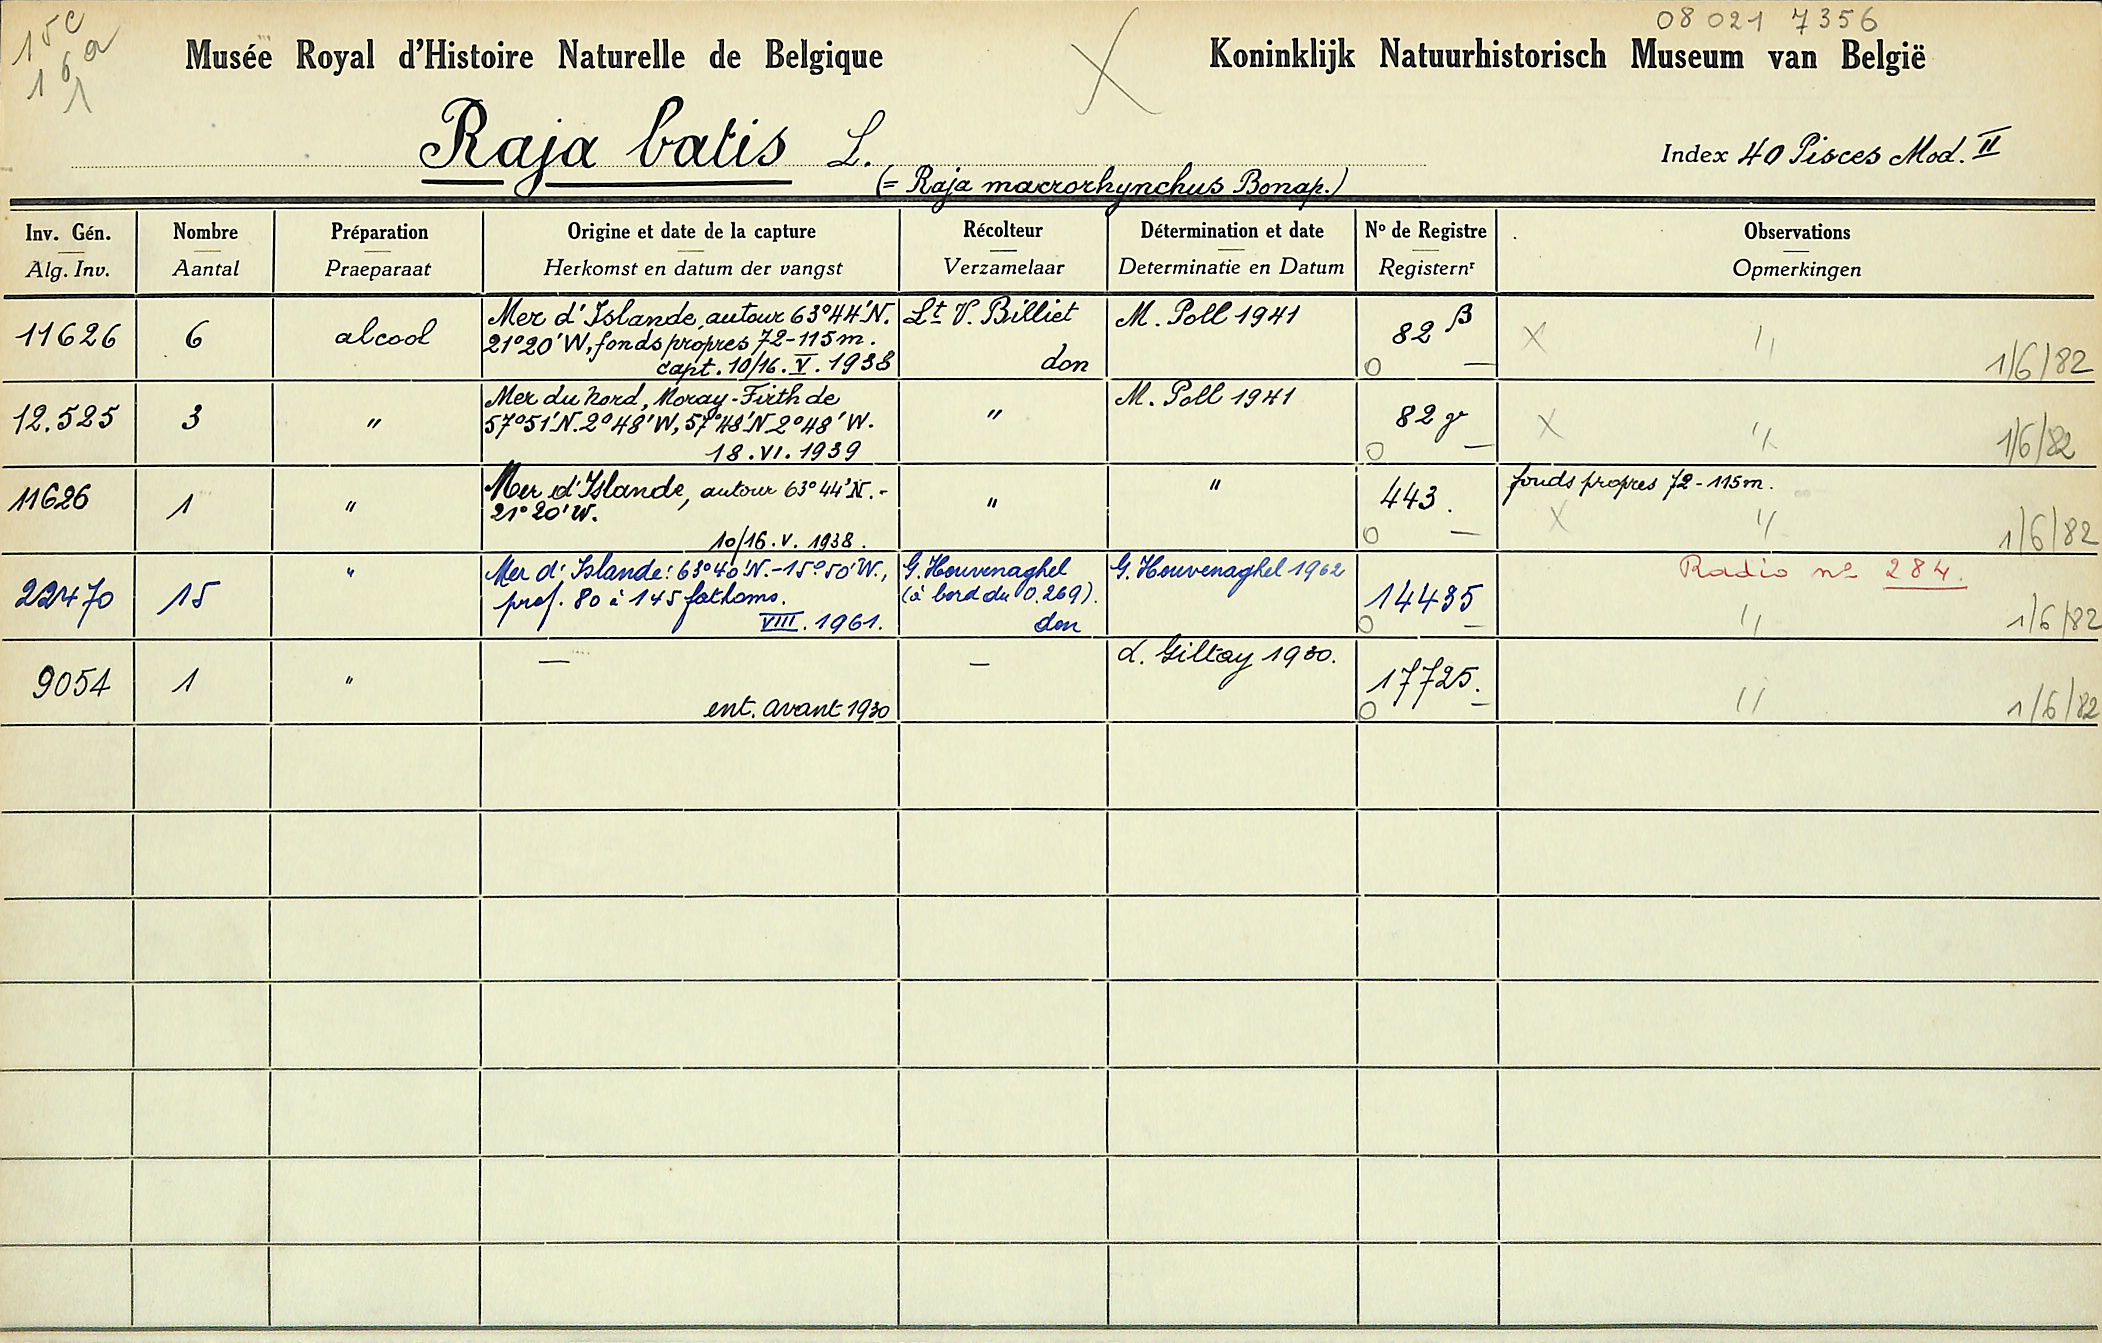 15c
16a
1
08 021 7356
Musée Royal d'Histoire Naturelle de Belgique
Koninklijk Natuurhistorisch Museum van België
Raja batis L.
(= Raja macrorhynchus Bonap.)
Index 40 Pisces Mod. II
Inv. Gén. Nombre Préparation Origine et date de la capture Récolteur Détermination et date N° de Registre Observations
Alg. Inv. Aantal Praeparaat Herkomst en datum der vangst Verzamelaar Determinatie en Datum Registernr Opmerkingen
11626 6 alcool
Mer d'Islande, autour 63°44'N.
21°20'W, fonds propres 72-115m.
capt. 10/16. V. 1938
Lt V. Billiet
don
M. Poll 1941
82 β
O —
X "
1/6/82
12.525 3 "
Mer du Nord, Moray-Firth de
57°51'N. 2°48'W, 57°48'N 2°48'W.
18. VI. 1939
"
M. Poll 1941
82 γ
O —
X "
1/6/82
11626 1 "
Mer d'Islande, autour 63°44'N. -
21°20'W.
10/16. V. 1938.
"
"
443.
O —
fonds propres 72-115m.
X "
1/6/82
22470 15 "
Mer d'Islande: 63°40'N. - 15°50'W.,
prof. 80 à 145 fathoms.
VIII. 1961.
G. Houvenaghel
(à bord du O.269).
don
G. Houvenaghel 1962
14435
O —
Radio n° 284.
"
1/6/82
9054 1 "
—
ent. avant 1930
—
L. Giltay 1930.
17725.
O —
"
1/6/82